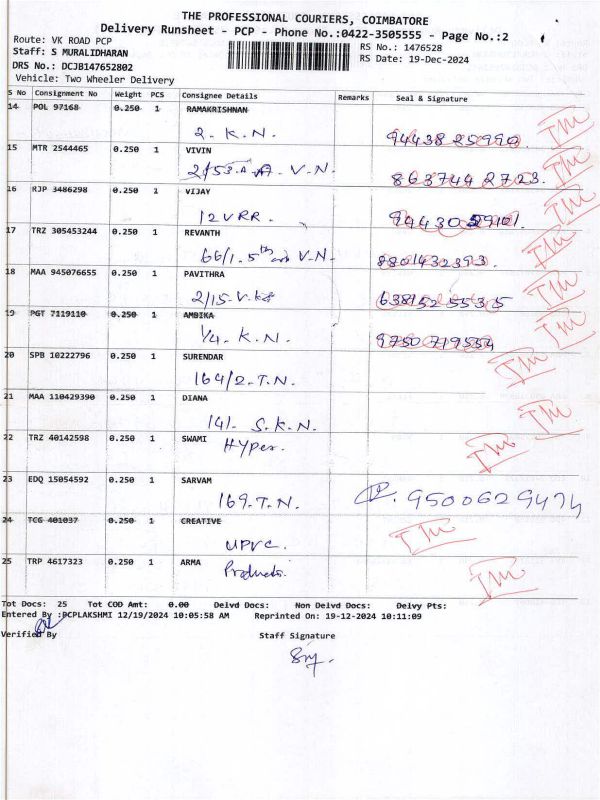 THE PROFESSIONAL COURIERS, COIMBATORE
Delivery Runsheet - PCP - Phone No.:0422-3505555 - Page No.:2
Route: VK ROAD PCP
RS No.: 1476528
Staff: S MURALIDHARAN
RS Date: 19-Dec-2024
DRS No.: DCJB147652802
Vehicle: Two Wheeler Delivery
S No Consignment No Weight PCS Consignee Details Remarks Seal & Signature
14 POL 97168 0.250 1 RAMAKRISHNAN
2. K. N.
15 MTR 2544465 0.250 1 VIVIN
V. N. 863744 2723.
16 RJP 3486298 0.250 1 VIJAY
12 VRR.
17 TRZ 305453244 0.250 1 REVANTH
66/1. 5th V-N. 8801432393.
18 MAA 945076655 0.250 1 PAVITHRA
2/15- 638152 5535
19 PGT 7119110 0.250 1 AMBIKA
1/4. K. N. 9750 719554
20 SPB 10222796 0.250 1 SURENDAR
164/2-T.N.
21 MAA 110429390 0.250 1 DIANA
141- S.K.N.
22 TRZ 40142598 0.250 1 SWAMI
Hyper.
23 EDQ 15054592 0.250 1 SARVAM
169-T.N. 9500629474
24 TCG 401037 0.250 1 CREATIVE
UPVC.
25 TRP 4617323 0.250 1 ARMA
Products.
Tot Docs: 25 Tot COD Amt: 0.00 Delvd Docs: Non Delvd Docs: Delvy Pts:
Entered By :PCPLAKSHMI 12/19/2024 10:05:58 AM Reprinted On: 19-12-2024 10:11:09
Verified By Staff Signature